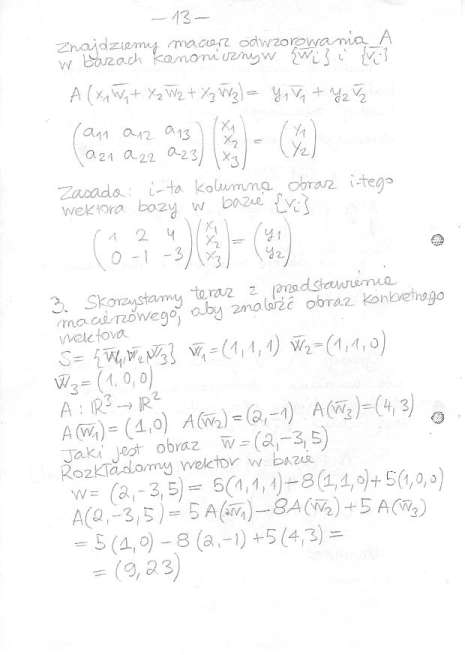 - 13 -
Znajdziemy macierz odwzorowania A
w bazach kanonicznyw {w̅i} i {v̅i}
A(x1w̅1 + x2w̅2 + x3w̅3) = y1v̅1 + y2v̅2
(a11 a12 a13) (x1)
(a21 a22 a23) (x2) = (y1)
(x3) (y2)
Zasada: i-ta kolumna obraz i-tego
wektora bazy w bazie {v̅i}
(1 2 4) (x1)
(0 -1 -3) (x2) = (y1)
(x3) (y2)
3. Skorzystamy teraz z przedstawienia
macierzowego, aby znaleźć obraz konkretnego
wektora
S = {w̅1, w̅2, w̅3} w̅1 = (1,1,1) w̅2 = (1,1,0)
w̅3 = (1,0,0)
A : ℝ³ → ℝ²
A(w̅1) = (1,0) A(w̅2) = (2,-1) A(w̅3) = (4,3)
Jaki jest obraz w̅ = (2,-3,5)
Rozkładamy wektor w bazie
w = (2,-3,5) = 5(1,1,1) - 8(1,1,0) + 5(1,0,0)
A(2,-3,5) = 5A(w̅1) - 8A(w̅2) + 5A(w̅3)
= 5(1,0) - 8(2,-1) + 5(4,3) =
= (9,23)